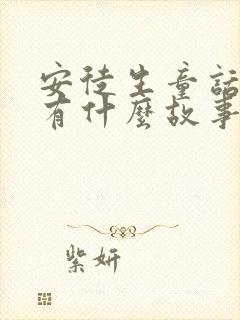 安徒生童話
有什麼故事
紫妍